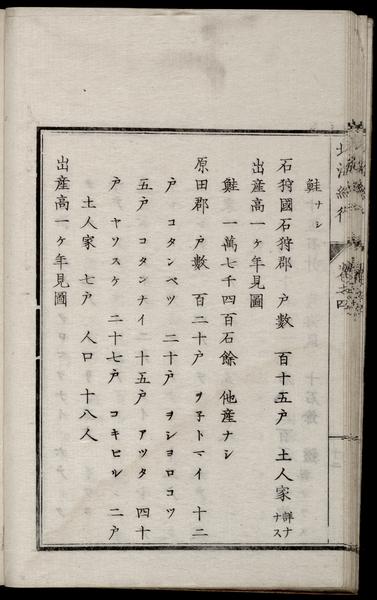 鮭ナシ
石狩國石狩郡　戸數　百十五戸　土人家 詳ナナス
出産高一ヶ年見圖
鮭　一萬七千四百石餘　他産ナシ
原田郡　戸數　百二十戸　ヲ子トマイ　十二
戸　コタンベツ　二十戸　ヲシヨロコツ
五戸　コタンナイ　二十五戸　アツタ　四十
戸　ヤソスケ　二十七戸　コキビル　二戸
土人家　七戸　人口　十八人
出産高一ヶ年見圖